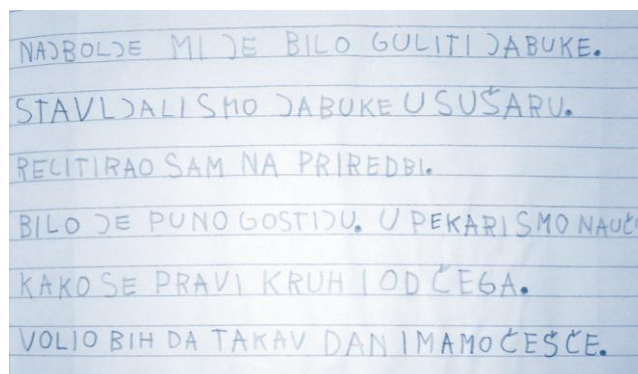 NAJBOLJE MI JE BILO GULITI JABUKE.
STAVLJALI SMO JABUKE U SUŠARU.
RECITIRAO SAM NA PRIREDBI.
BILO JE PUNO GOSTIJU. U PEKARI SMO NAUČ
KAKO SE PRAVI KRUH I OD ČEGA.
VOLIO BIH DA TAKAV DAN IMAMO ČEŠČE.